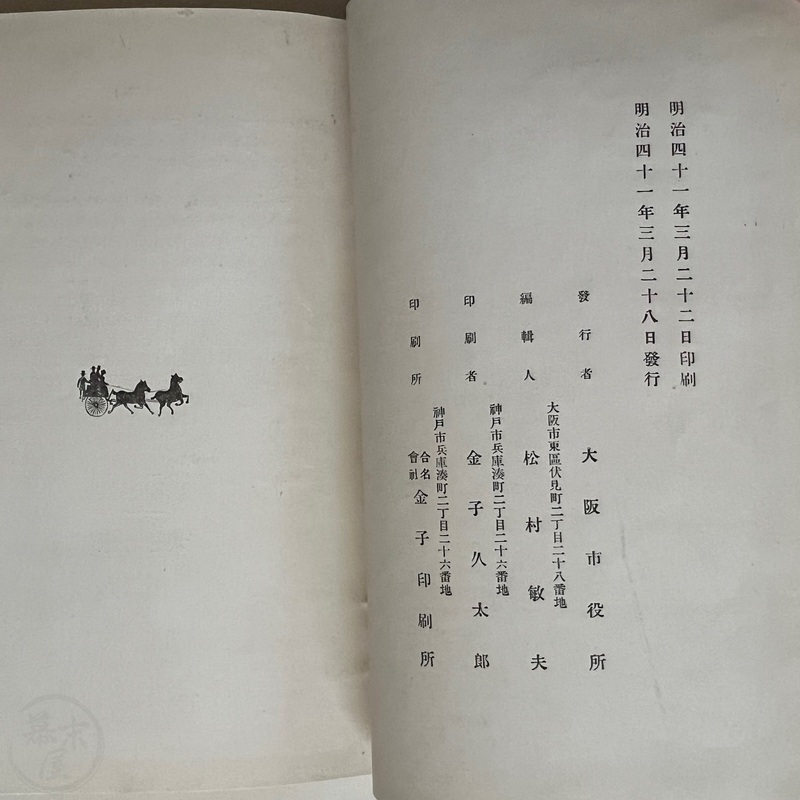 明治四十一年三月二十二日印刷
明治四十一年三月二十八日發行
發行者 大阪市役所
大阪市東區伏見町二丁目二十八番地
編輯人 松村敏夫
神戸市兵庫湊町二丁目二十六番地
印刷者 金子久太郎
神戸市兵庫湊町二丁目二十六番地
印刷所 合名會社 金子印刷所
幕末屋